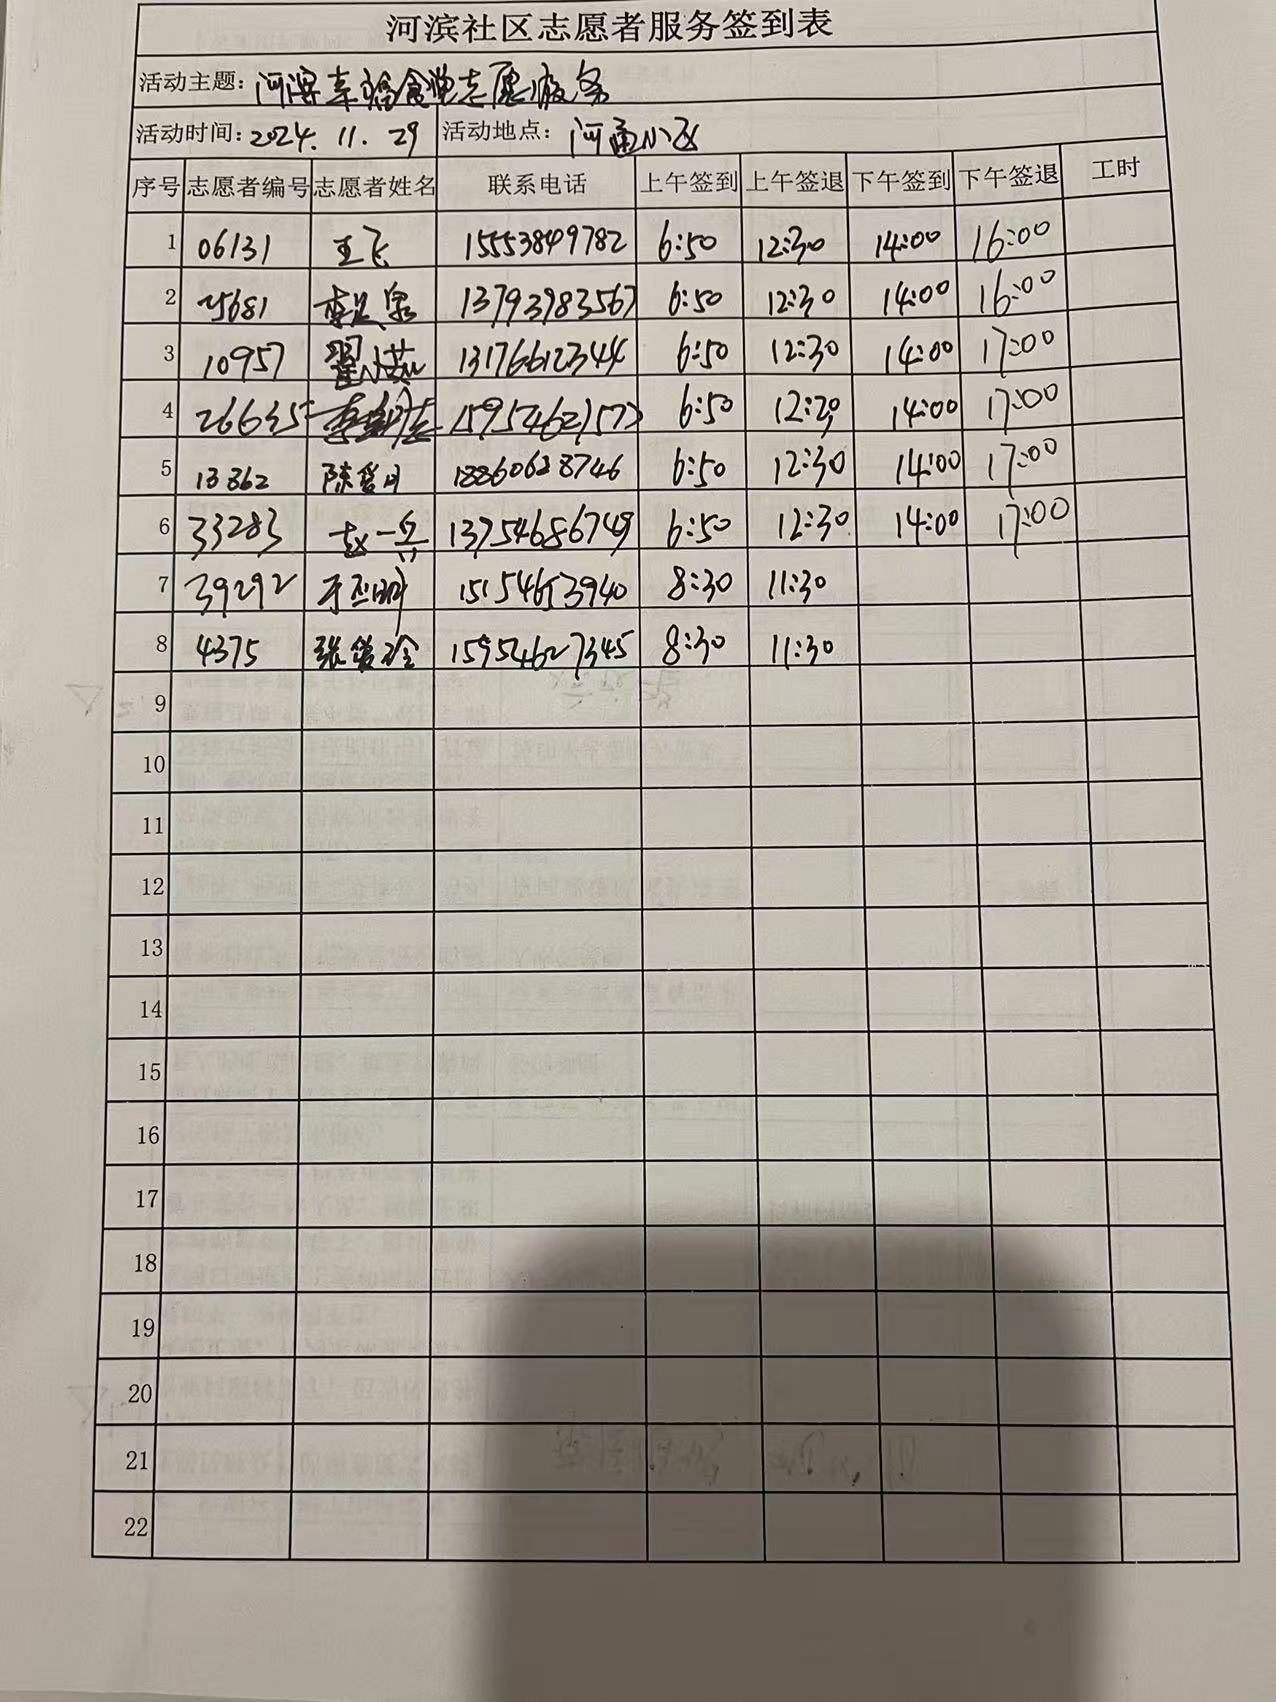 河滨社区志愿者服务签到表
活动主题: 河滨幸福食堂志愿服务
活动时间: 2024.11.29 活动地点: 河通小区
序号 志愿者编号 志愿者姓名 联系电话 上午签到 上午签退 下午签到 下午签退 工时
1 06131 王飞 15553849782 6:50 12:30 14:00 16:00
2 25681 13793983567 6:50 12:30 14:00 16:00
3 10957 翟小茹 13176612344 6:50 12:30 14:00 17:00
4 26635 6:50 12:30 14:00 17:00
5 13362 陈爱月 18860628746 6:50 12:30 14:00 17:00
6 33283 赵一兵 13754686749 6:50 12:30 14:00 17:00
7 39292 15154653940 8:30 11:30
8 4375 张俊玲 15954627345 8:30 11:30
9
10
11
12
13
14
15
16
17
18
19
20
21
22